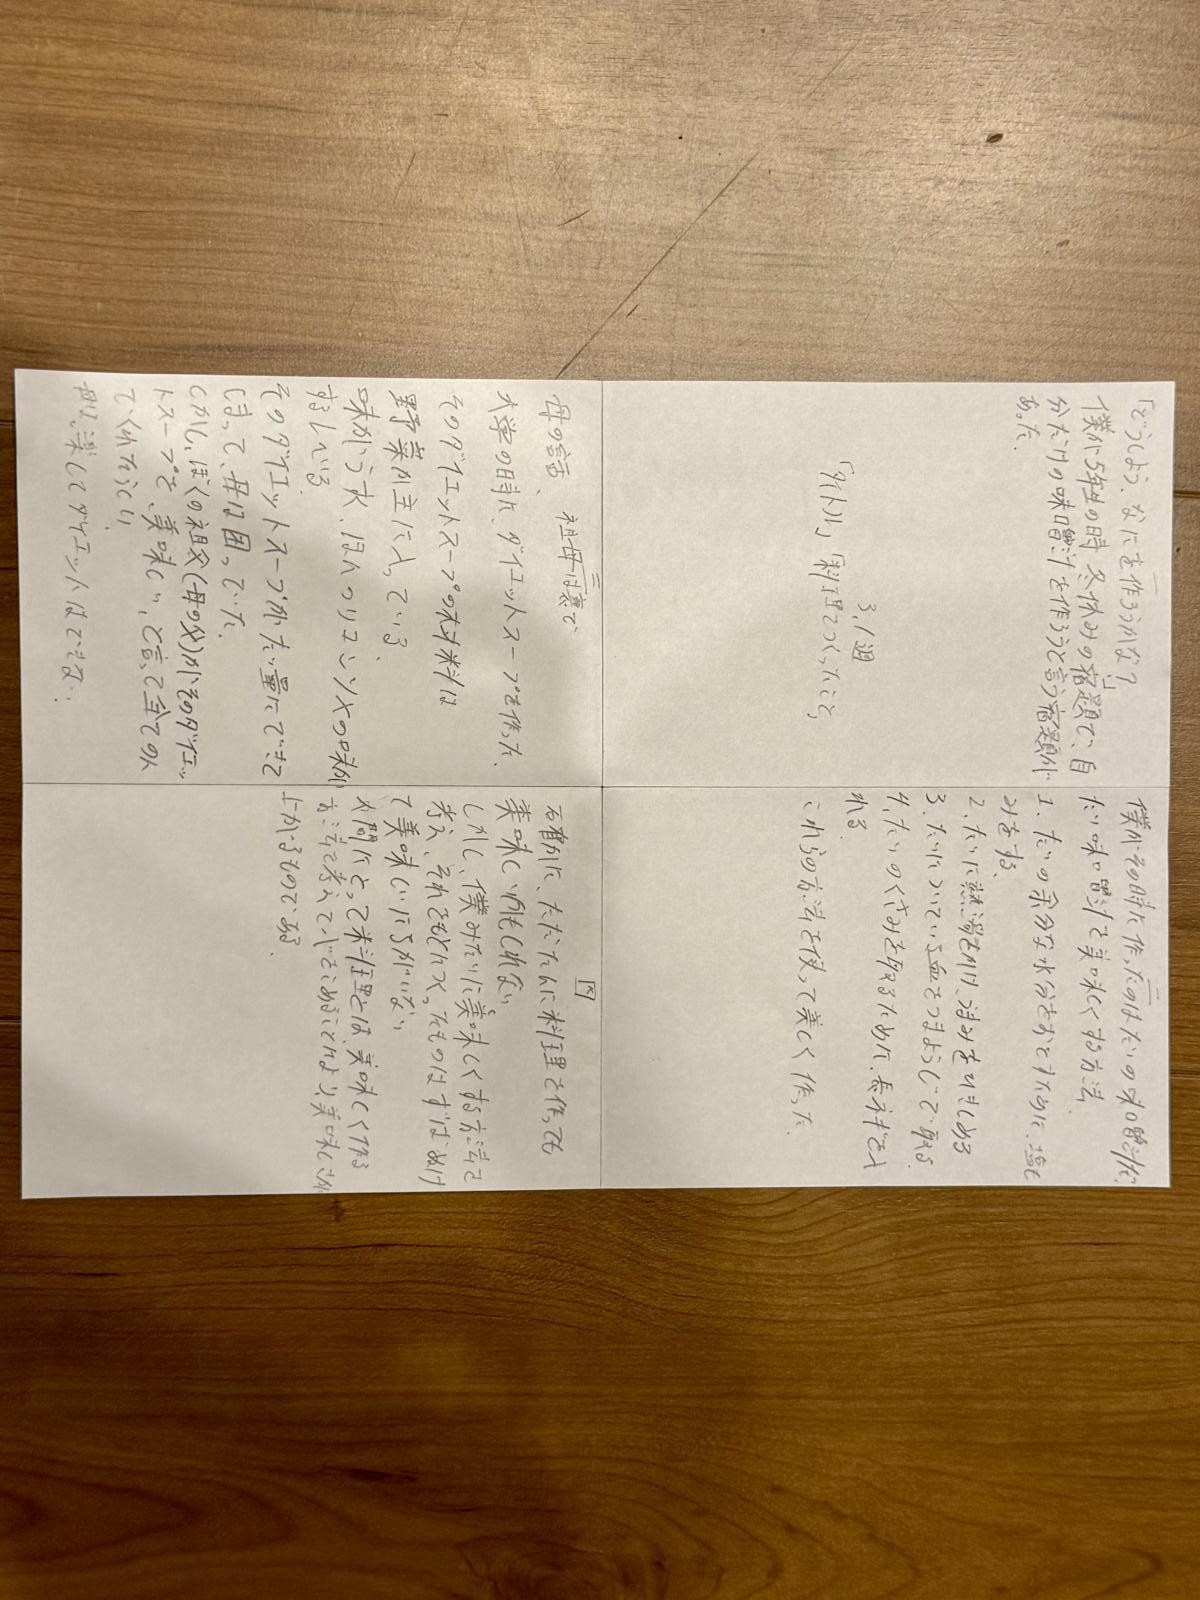 「どうしよう、なにを作ろうかな？」
僕が5年生の時、冬休みの宿題で、自
分だけの味噌汁を作ろうと言う宿題が
あった。
3.1週
「タイトル」「料理でつくったこと」
二
僕がその時に作ったのはたいの味噌汁だ。
たい味噌汁で美味しくする方法、
1. たいの余分な水分をおとすために、塩も
みをする、
2. たいに熱湯をかけ、
3. たいについている血をつまようじで取る
4. たいのくさみを取るために、長ネギを入
れる
これらの方法を使って美しく作った。
三
母の話、祖母は意で
大学の時に、ダイエットスープを作った、
そのダイエットスープの材料は
野菜が主に入っている
味がうすく、ほんのりコンソメの味が
するしいる
そのダイエットスープがたい量にできて
しまって、母は困っていた
しかし、ぼくの祖父(母の父)がそのダイエッ
トスープを、美味しいと言って全てのん
でくれたらしい
楽してダイエットはできない
四
百着かに、ただたんに料理を作っても
美味しいかもしれない
しかし、僕みたいに美味しくする方法を
考え、それをもとに作ったものはずばぬけ
て美味しいにちがいない
人間にとって料理とは、美味しくなる
方法を考えて心をこめることにより、美味しさが
上がるものである。